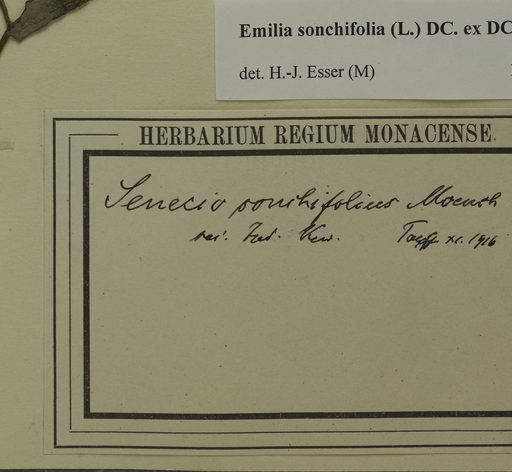 Emilia sonchifolia (L.) DC. ex DC
det. H.-J. Esser (M)
HERBARIUM REGIUM MONACENSE.
Senecio sonchifolius Moench
sec. Ind. Kew. xi. 1916